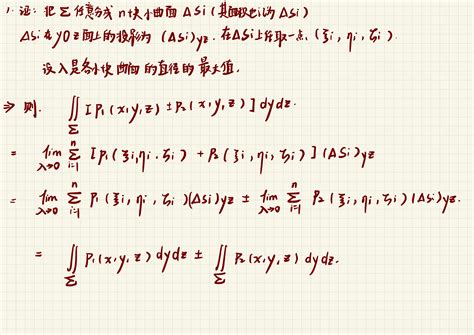 1. 证: 把 Σ 任意分成 n 块小曲面 ΔSi (其面积也记为 ΔSi)
ΔSi 在 yOz 面上的投影为 (ΔSi)yz. 在ΔSi上任取一点 (ξi, ηi, ζi).
设 λ 是各小块曲面的直径的最大值.
⇒ 则. ∬Σ [P₁(x,y,z) ± P₂(x,y,z)] dydz.
= lim λ→0 Σ i=1 n [P₁(ξi, ηi, ζi) + P₂(ξi, ηi, ζi)] (ΔSi)yz
= lim λ→0 Σ i=1 n P₁(ξi, ηi, ζi)(ΔSi)yz ± lim λ→0 Σ i=1 n P₂(ξi, ηi, ζi)(ΔSi)yz.
= ∬Σ P₁(x,y,z) dydz ± ∬Σ P₂(x,y,z) dydz.